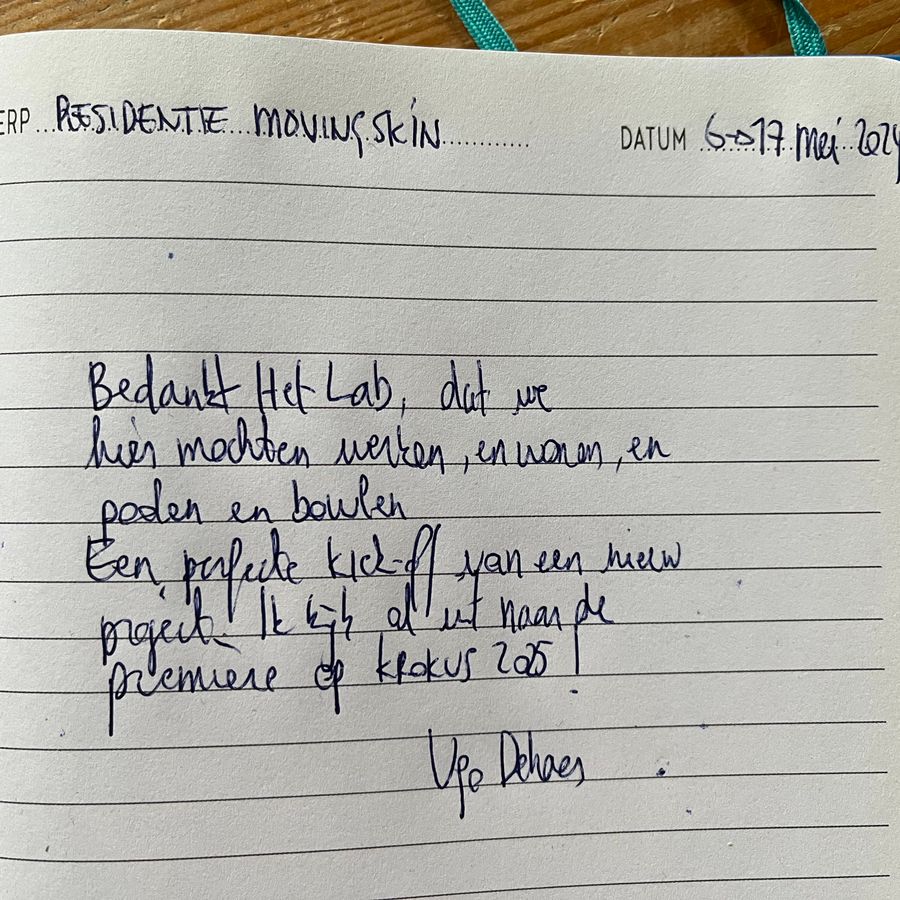 ERP RESIDENTIE MOVING SKIN DATUM 6→17 mei 2024
Bedankt Het Lab, dat we
hier mochten werken, en wonen, en
poolen en bowlen
Een perfecte kick-off van een nieuw
project. Ik kijk al uit naar de
première op KROKUS 2025!
Ugo Dehaes